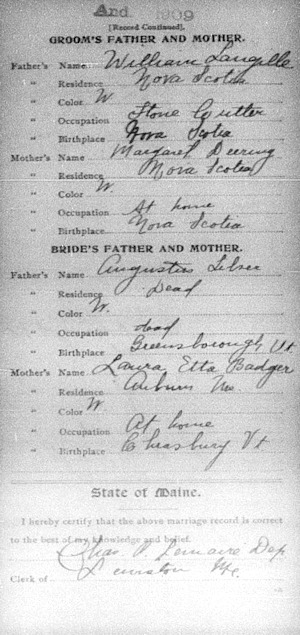 And 1909
[Record Continued].
GROOM'S FATHER AND MOTHER.
Father's Name William Langille
" Residence Nova Scotia
" Color W
" Occupation Stone Cutter
" Birthplace Nova Scotia
Mother's Name Margaret Deering
" Residence Nova Scotia
" Color W.
" Occupation At home
" Birthplace Nova Scotia
BRIDE'S FATHER AND MOTHER.
Father's Name Augustus
" Residence Dead
" Color W.
" Occupation dead
" Birthplace Greensborough Vt
Mother's Name Laura Etta Badger
" Residence Auburn Me
" Color W
" Occupation At home
" Birthplace Vt
State of Maine.
I hereby certify that the above marriage record is correct
to the best of my knowledge and belief.
Chas. P. Lemaire Dep
Clerk of Lewiston Me.